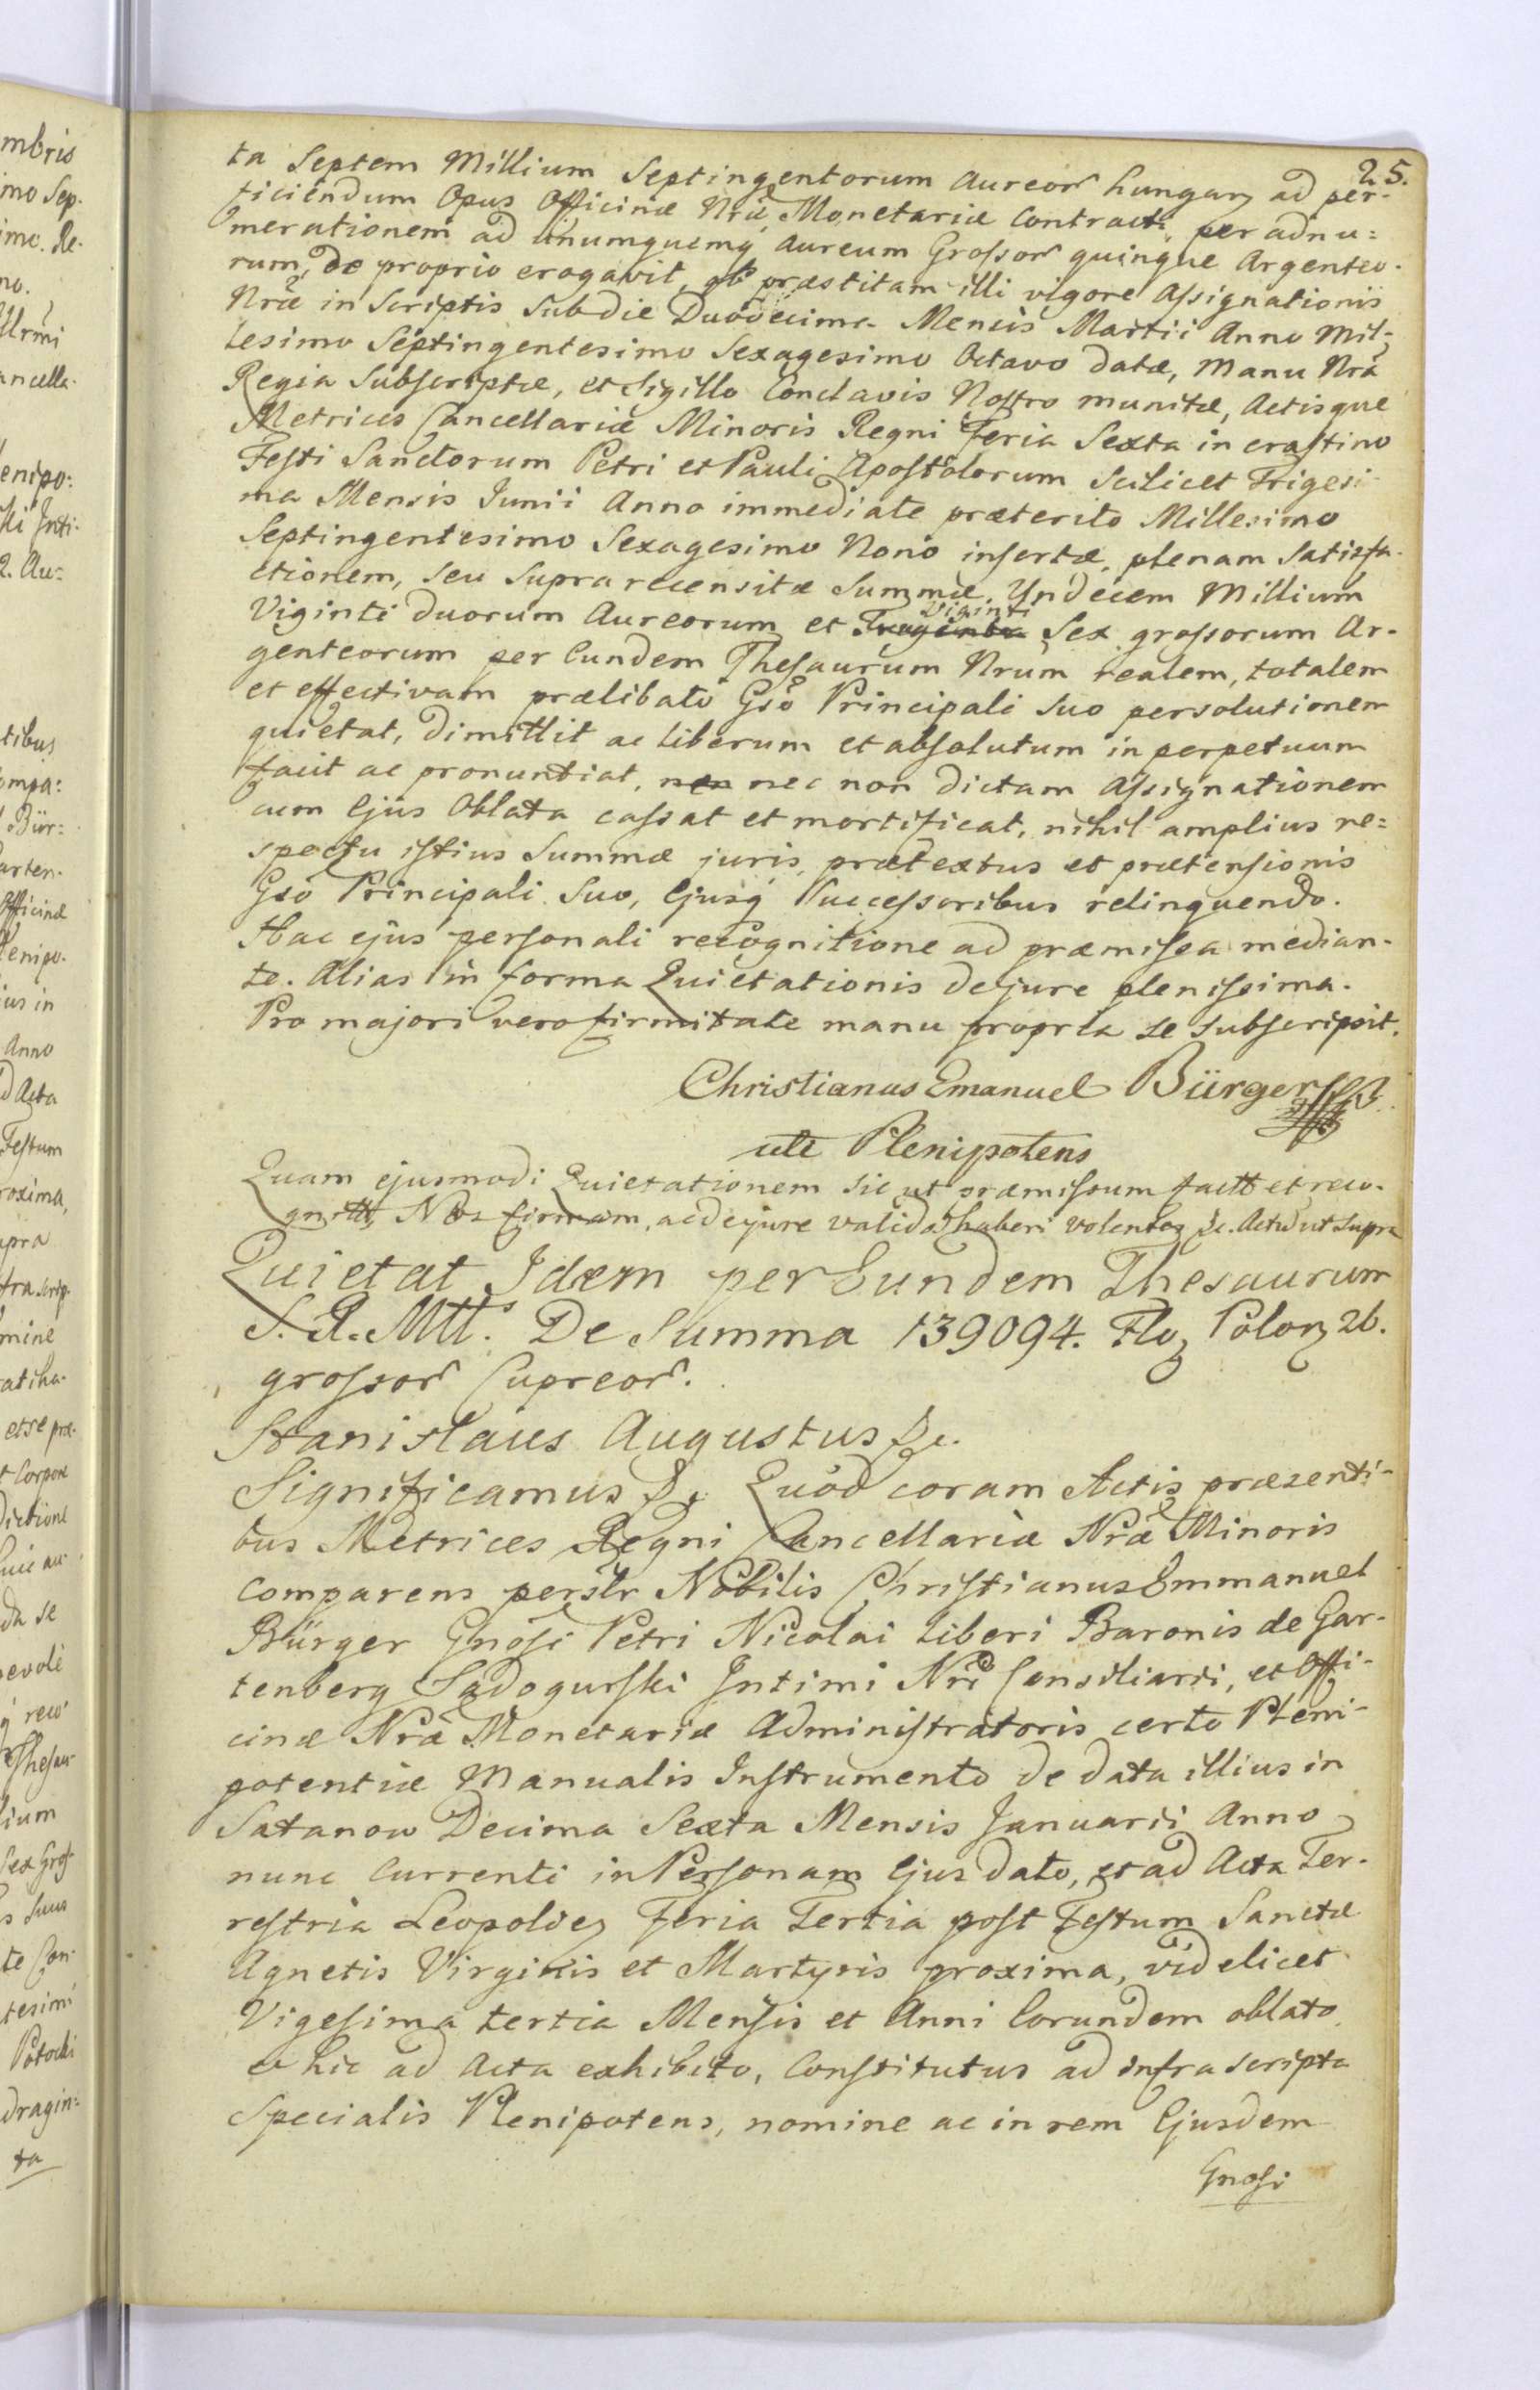 25.
ta Septem Millium Septingentorum Aureor hungar ad per-
ficiendum Opus Officinæ Nræ Monetariæ Contracti, per adnu=
merationem ad unumquemq Aureum Grossor quinque Argenteo-
rum, de proprio erogavit, ob præstitam illi vigore Assignationis
Nræ in Scriptis Sub die Duodecima Mensis Martii Anno Mil-
lesimo Septingentesimo Sexagesimo Octavo datæ, Manu Nrâ
Regia Subscriptæ, et Sigillo Conclavis Nostro munitæ, Actisque
Metrices Cancellariæ Minoris Regni Feria Sexta in crastino
Festi Sanctorum Petri et Pauli Apostolorum Scilicet Trigesi-
ma Mensis Junii Anno immediate præterito Millesimo
Septingentesimo Sexagesimo Nono insertæ, plenam Satisfa-
ctionem, seu Supra recensitæ Summæ Undecem Millium
Viginti duorum Aureorum et Viginti Sex grossorum Ar-
genteorum per Eundem Thesaurum Nrum realem, totalem
et effectivam prælibato Gso Principali Suo persolutionem
quietat, dimittit ac liberum et absolutum in perpetuum
facit ac pronuntiat, nec non dictam Assignationem
cum Ejus Oblata cassat et mortificat, nihil amplius re=
spectu istius Summæ juris, prætextus et prætensionis
Gso Principali Suo, Ejusq Successoribus relinquendo.
Hac ejus personali recognitione ad præmissa median-
te. Alias in forma Quietationis de jure plenissima.
Pro majori vero firmitate manu propria se subscripsit.
Christianus Emanuel Bürger
uti Plenipotens
Quam ejusmodi Quietationem sic ut præmissum factt et reco-
gnitt, Nos firmam, ac de jure valida haberi volentes &c. Actu ut Supra
Quietat Idem per Eundem Thesaurum
S. R. Mtt. De Summa 139094. Flo Polon 26.
grossor Cupreor.
Stanislaus Augustus &c.
Significamus &c. Quod coram Actis præsenti-
bus Metrices Regni Cancellariæ Nræ Minoris
comparens persltr Nobilis Christianus Emmanuel
Bürger Gnosi Petri Nicolai Liberi Baronis de Gar-
tenberg Sadogurski Intimi Nri Consiliarii, et Offi-
cinæ Nræ Monetariæ Administratoris certo Pleni-
potentiæ Manualis Instrumento de data illius in
Satanow Decima Sexta Mensis Januarii Anno
nunc Currenti in Personam Ejus dato, et ad Acta Ter-
restria Leopolien Feria Tertia post Festum Sanctæ
Agnetis Virginis et Martyris proxima, videlicet
Vigesima tertia Mensis et Anni Eorundem oblato
& hic ad Acta exhibito, Constitutus ad infra scripta
Specialis Plenipotens, nomine ac in rem Ejusdem
Gnosi